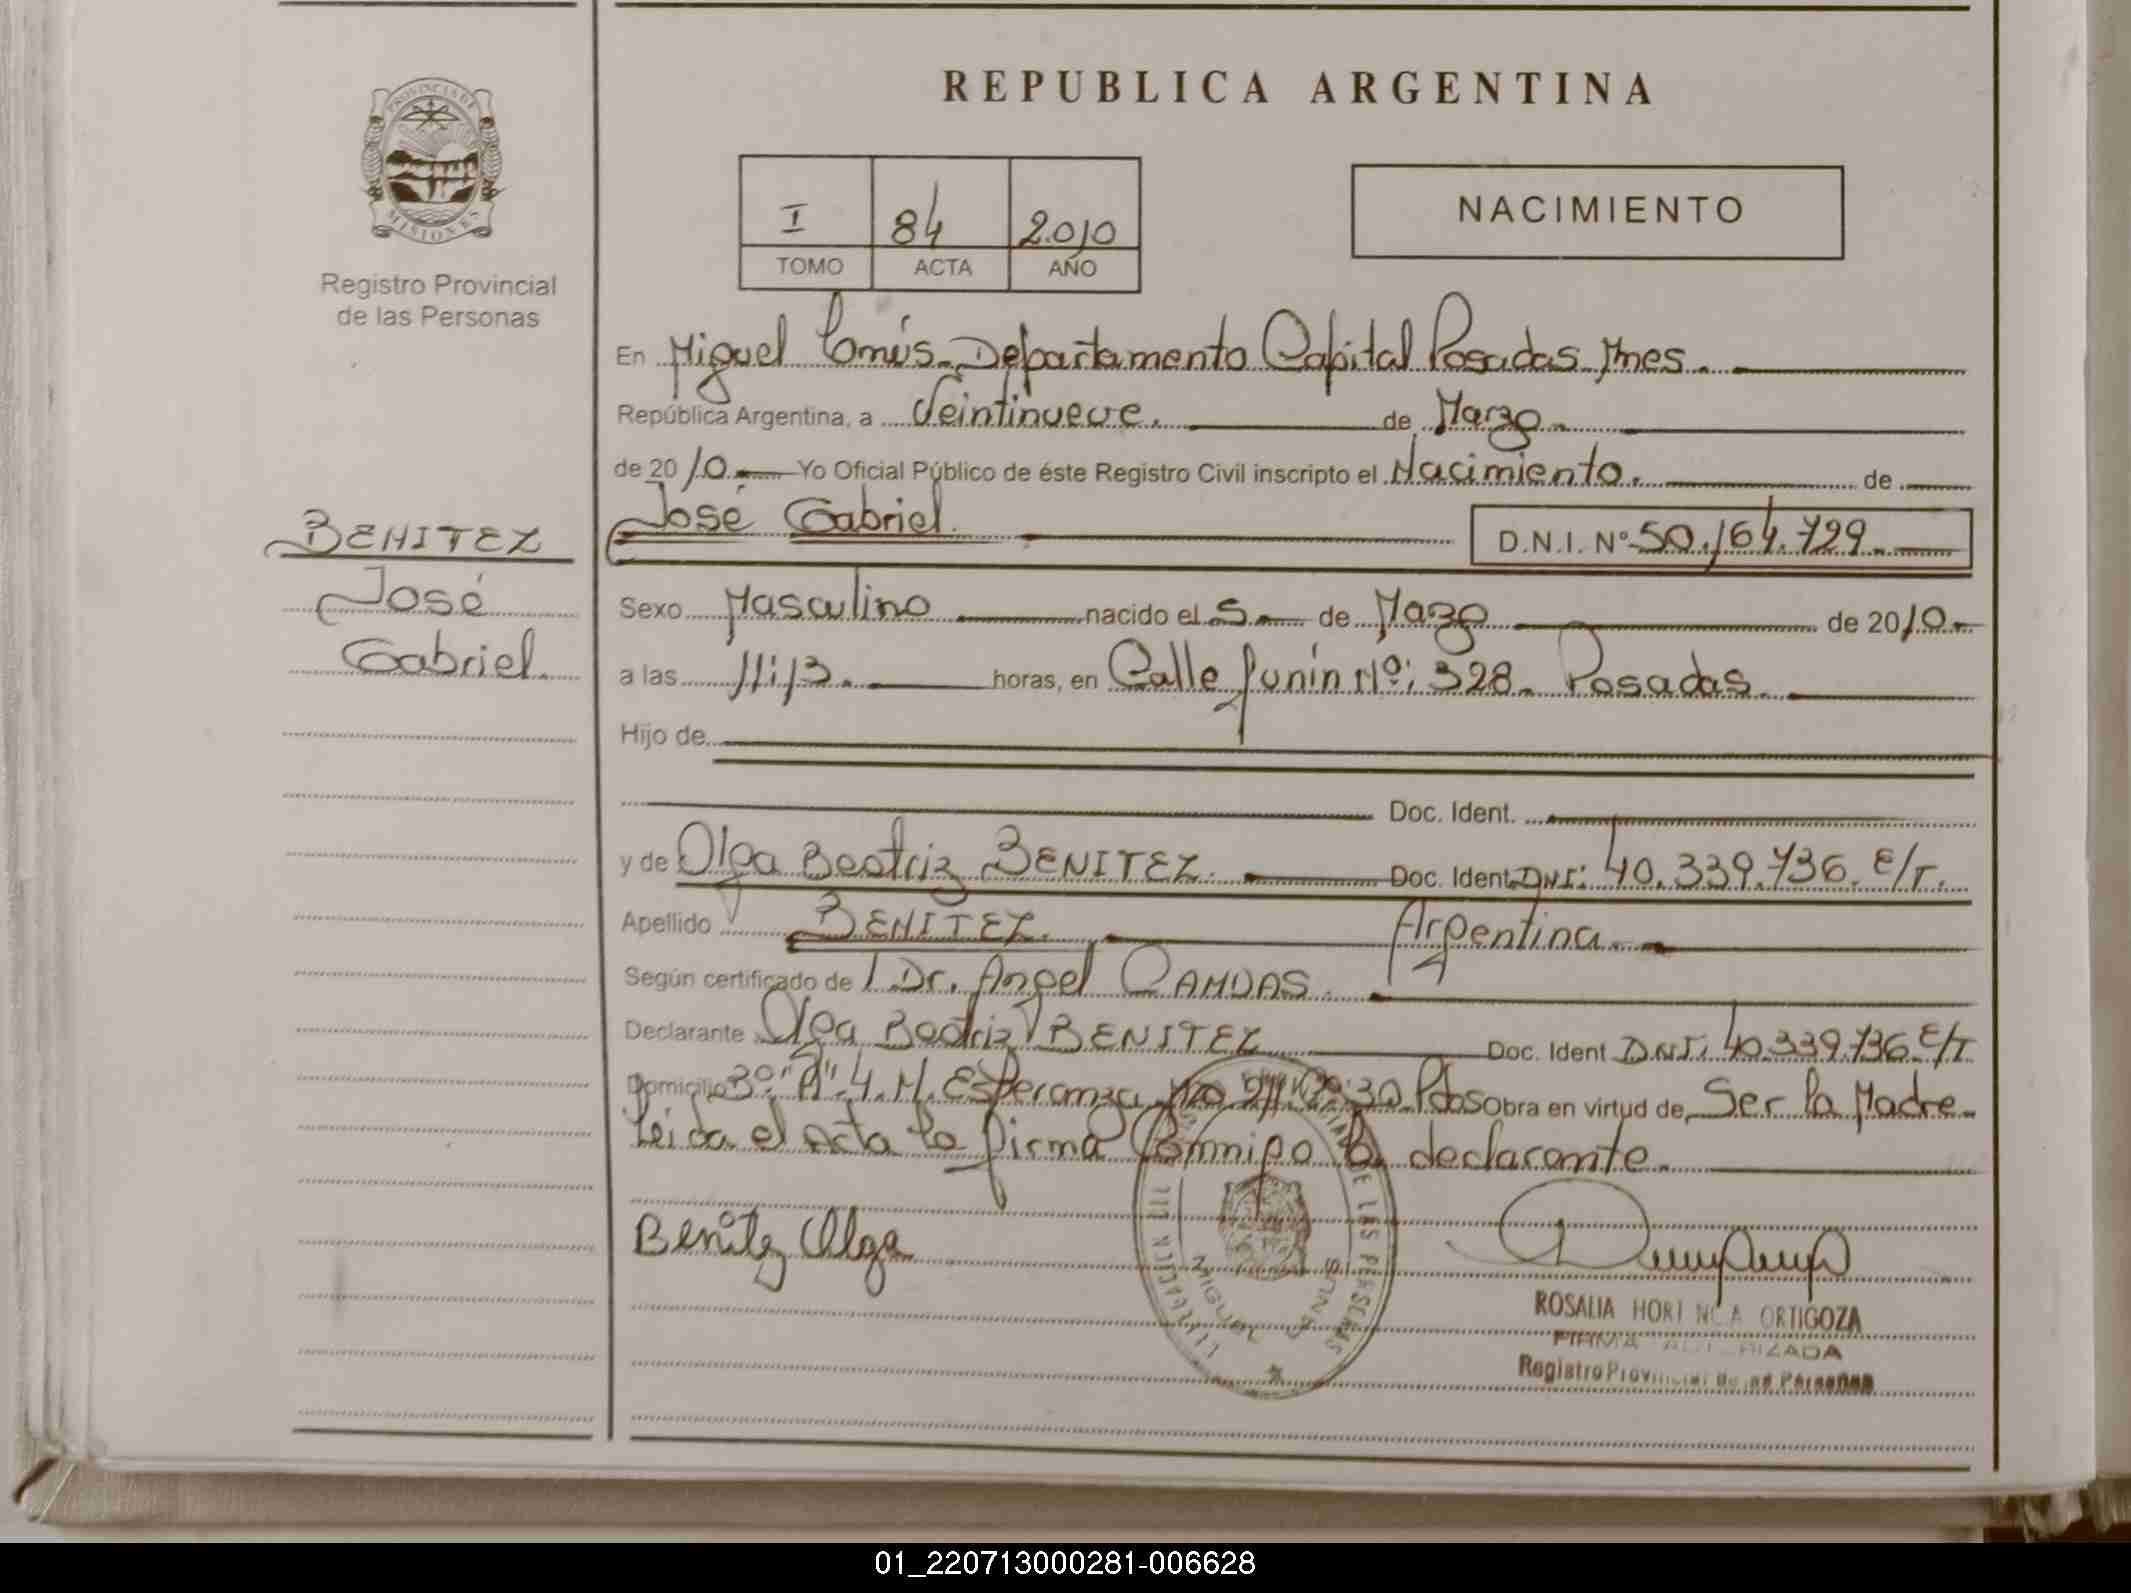 REPUBLICA ARGENTINA
PROVINCIA DE
MISIONES
Registro Provincial
de las Personas
I 84 2.010
TOMO ACTA AÑO
NACIMIENTO
En Miguel Lanús. Departamento Capital Posadas Mnes.
República Argentina, a Veintinueve. de Marzo.
de 2010. Yo Oficial Público de éste Registro Civil inscripto el Nacimiento. de
José Gabriel. D.N.I. Nº 50.164.729.
BENITEZ
José
Gabriel.
Sexo Masculino nacido el 5. de Marzo de 2010.
a las 11:13. horas, en Calle Junín Nº: 328. Posadas.
Hijo de
Doc. Ident.
y de Olga Beatriz BENITEZ. Doc. Ident. DNI: 40.339.736. E/T.
Apellido BENITEZ. Argentina.
Según certificado de Dr. Angel
Declarante Olga Beatriz BENITEZ Doc. Ident DNI: 40.339.736 E/T.
Domicilio 3º "A" 4. N. Esperanza 30 Pdas Obra en virtud de, Ser la Madre.
Leida el acta la firma Conmigo la declarante.
Benitez Olga
DE LAS PERSONAS
MIGUEL LANUS
ROSALIA HORTENCIA ORTIGOZA
FIRMA AUTORIZADA
Registro Provincial de las Personas
01_220713000281-006628